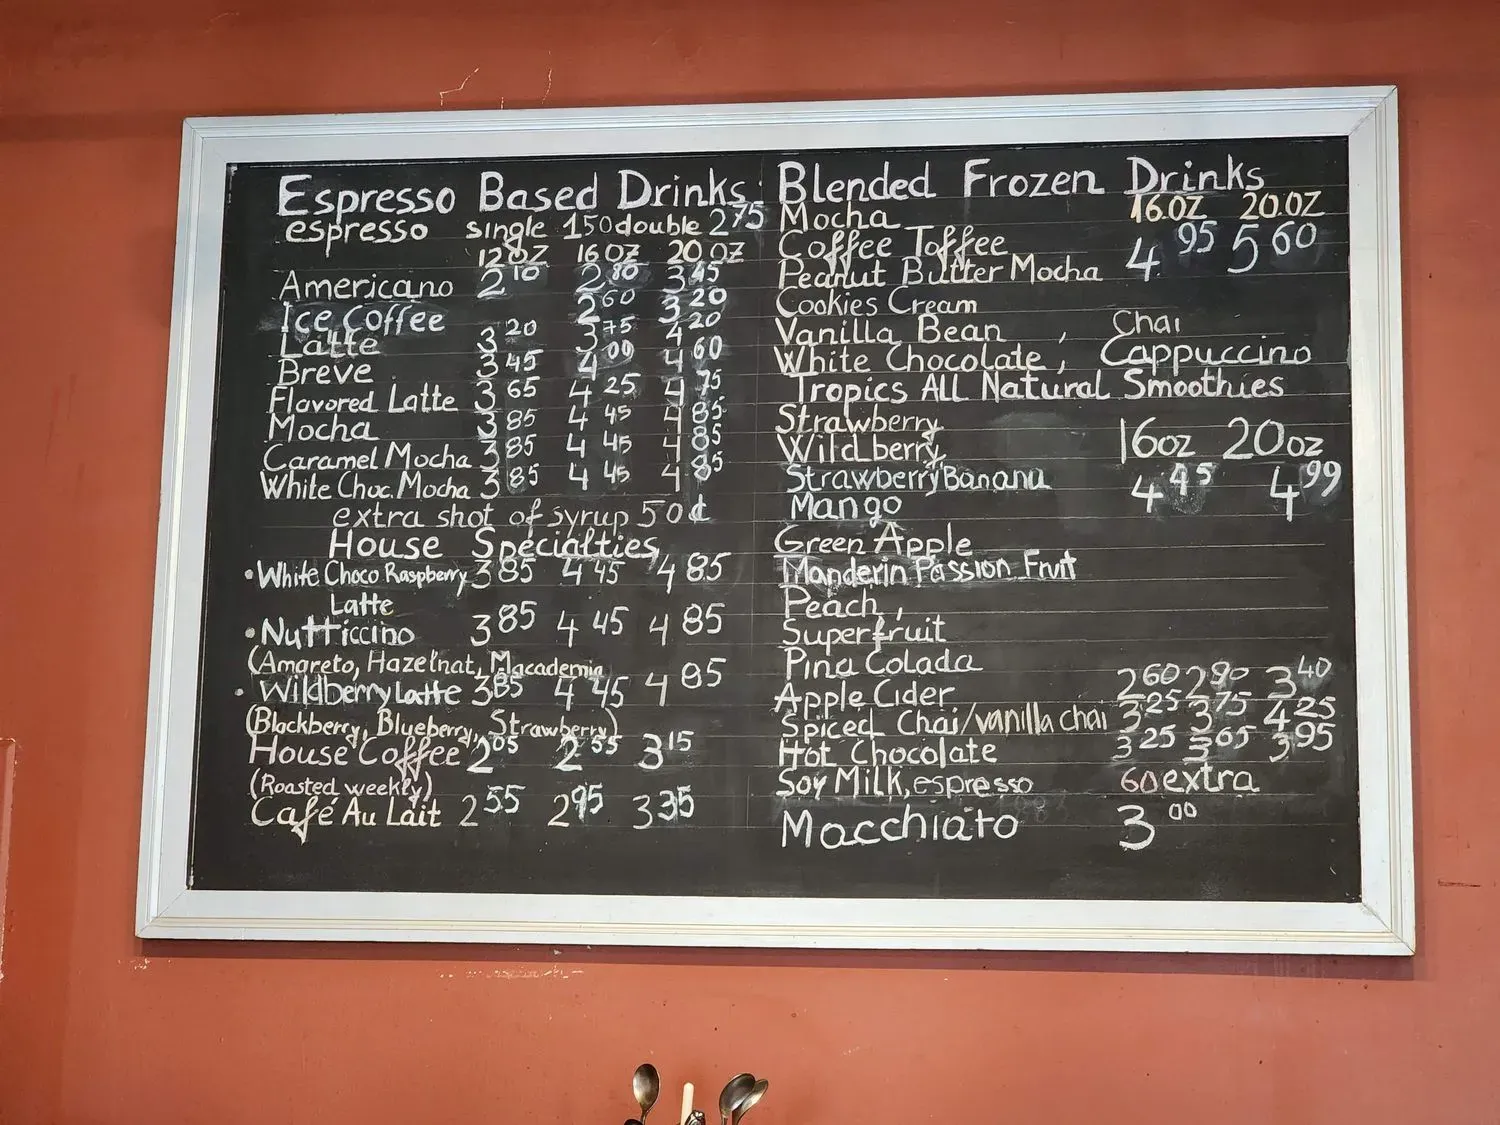 Espresso Based Drinks
espresso single 150 double 275
12OZ 16OZ 20OZ
Americano 2 10 2 80 3 45
Ice Coffee 2 60 3 20
Latte 3 20 3 75 4 20
Breve 3 45 4 00 4 60
Flavored Latte 3 65 4 25 4 75
Mocha 3 85 4 45 4 85
Caramel Mocha 3 85 4 45 4 85
White Choc. Mocha 3 85 4 45 4 85
extra shot of syrup 50¢
House Specialties
• White Choco Raspberry 3 85 4 45 4 85
Latte
• Nutticcino 3 85 4 45 4 85
(Amareto, Hazelnat, Macademia
• Wildberry Latte 3 85 4 45 4 85
(Blackberry, Blueberry, Strawberry)
House Coffee 2 05 2 55 3 15
(Roasted weekly)
Café Au Lait 2 55 2 95 3 35
Blended Frozen Drinks
Mocha 16.OZ 20.OZ
Coffee Toffee 4 95 5 60
Peanut Butter Mocha
Cookies Cream
Vanilla Bean , Chai
White Chocolate , Cappuccino
Tropics All Natural Smoothies
Strawberry
Wildberry 16oz 20oz
Strawberry Banana 4 45 4 99
Mango
Green Apple
Manderin Passion Fruit
Peach ,
Superfruit
Pina Colada
Apple Cider 2 60 2 90 3 40
Spiced Chai/vanilla chai 3 25 3 75 4 25
Hot Chocolate 3 25 3 65 3 95
Soy Milk, espresso 60 extra
Macchiato 3 00